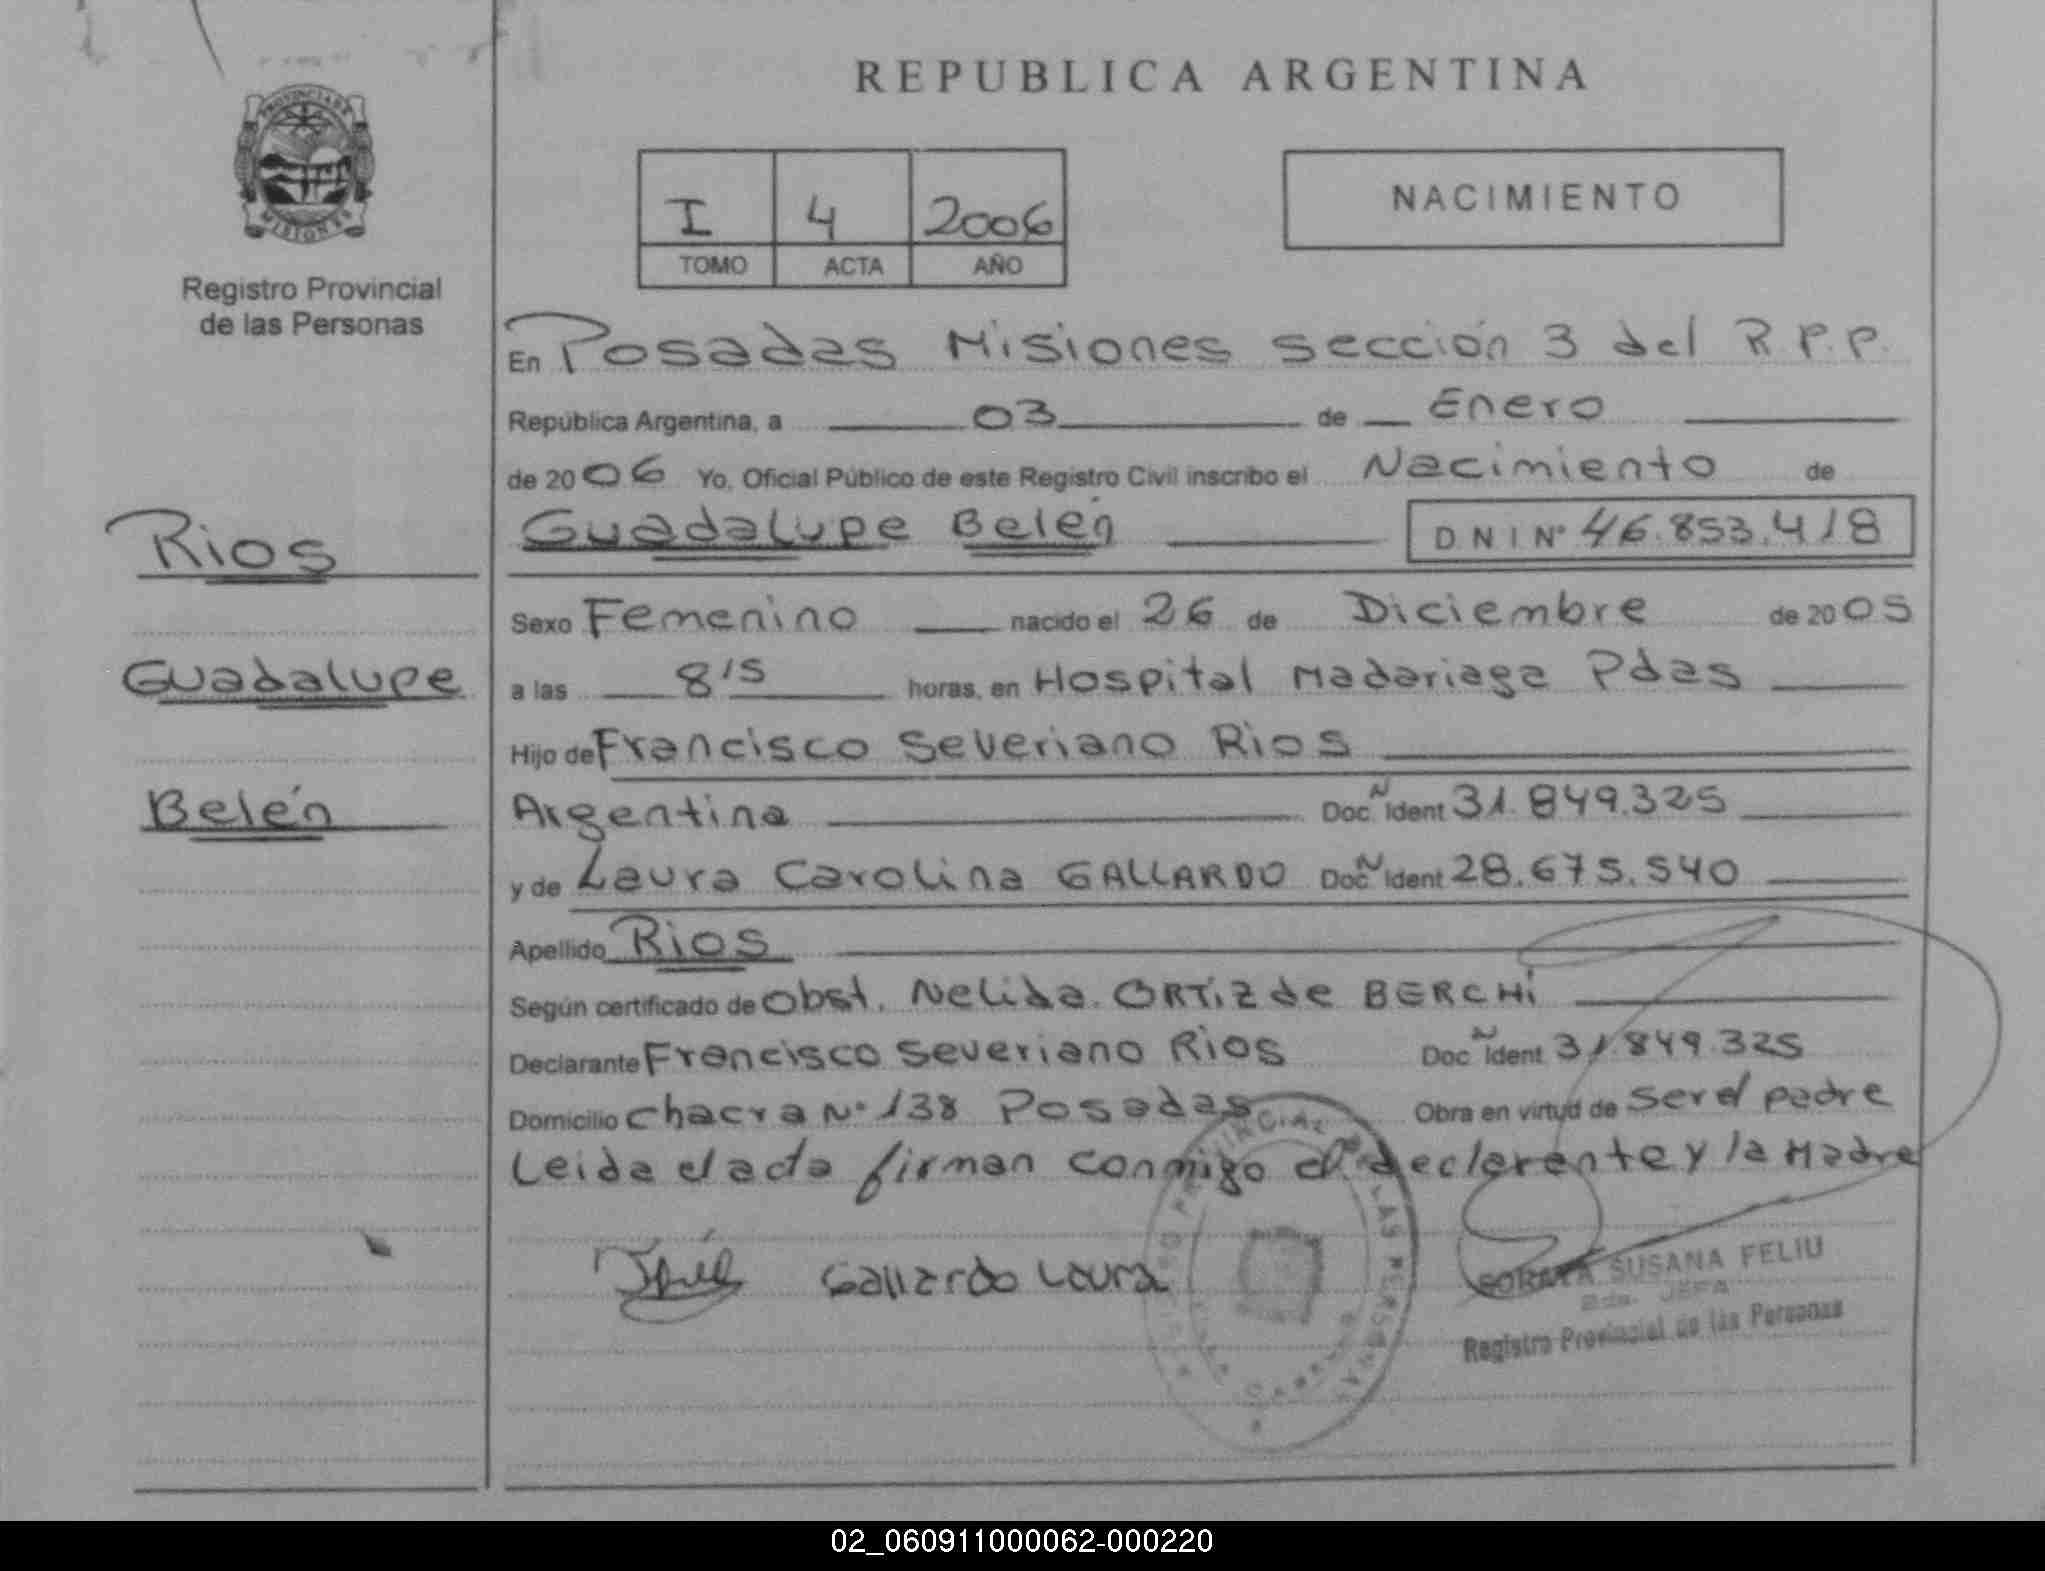 REPUBLICA ARGENTINA
PROVINCIA DE
MISIONES
Registro Provincial
de las Personas
I 4 2006
TOMO ACTA AÑO
NACIMIENTO
En Posadas Misiones sección 3 del R.P.P.
República Argentina, a 03 de Enero
de 2006 Yo, Oficial Público de este Registro Civil inscribo el Nacimiento de
Guadalupe Belén D N I Nº 46.853.418
Rios
Guadalupe
Belén
Sexo Femenino nacido el 26 de Diciembre de 2005
a las 8 15 horas, en Hospital Madariaga Pdas
Hijo de Francisco Severiano Rios
Argentina Doc. Ident 31.849.325
y de Laura Carolina GALLARDO Doc. Ident 28.675.540
Apellido Rios
Según certificado de Obst. Nelida ORTiZ de BERCHi
Declarante Francisco Severiano Rios Doc Ident 31.849.325
Domicilio Chacra Nº 138 Posadas Obra en virtud de ser el padre
Leida el acta firman conmigo el declarante y la Madre
Gallardo Laura
SORAYA SUSANA FELIU
JEFA
Registro Provincial de las Personas
02_060911000062-000220